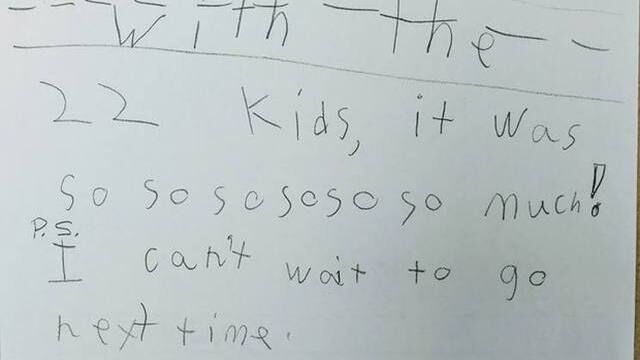 with the
22 Kids, it was
so so sososo so much!
P.S.
I can't wait to go
next time.